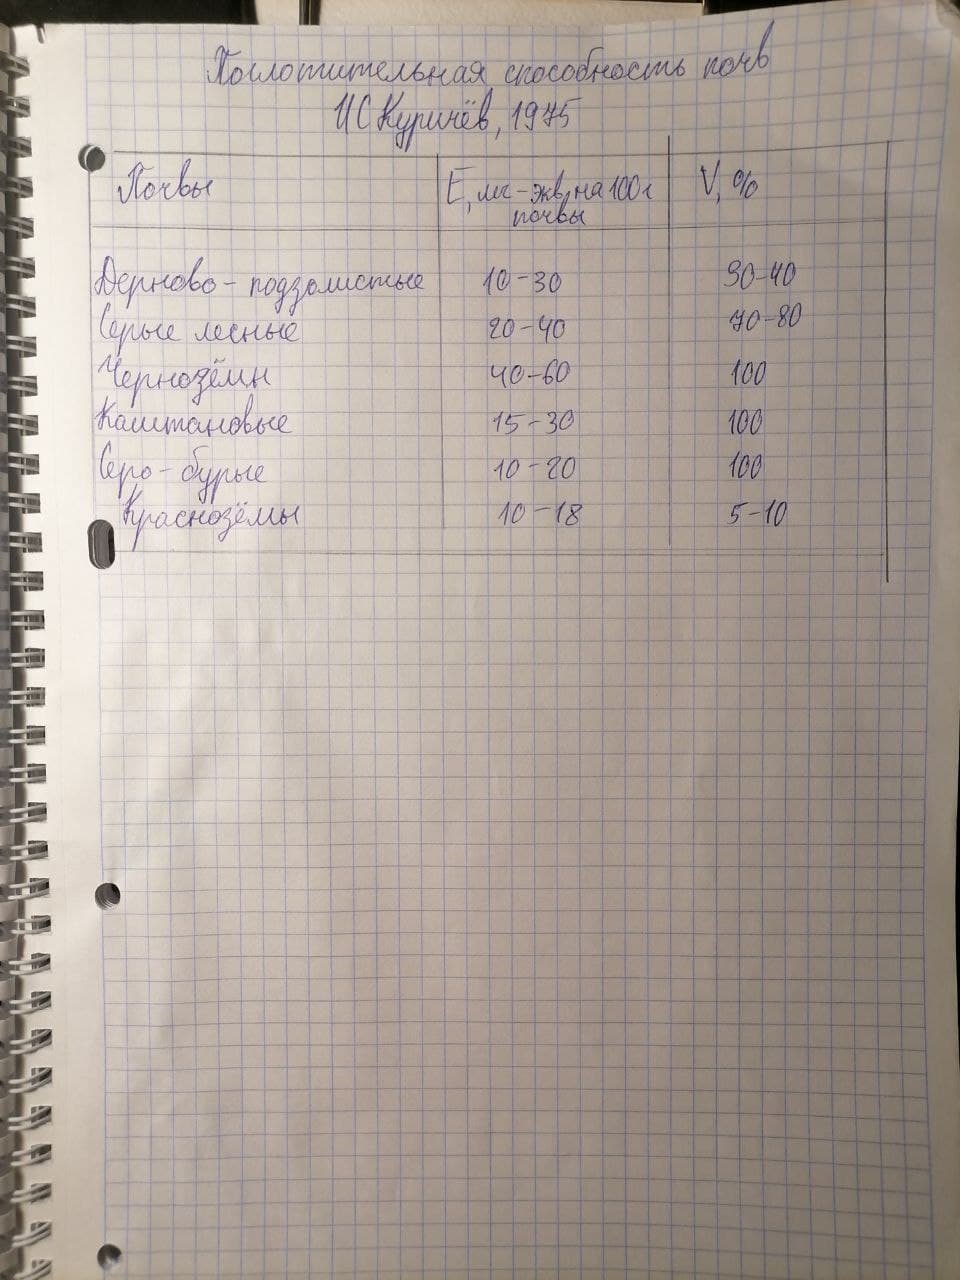 Поглотительная способность почв
ИС Куричёв, 1975
Почвы E, мг-экв, на 100 г почвы V, %
Дерново-подзолистые 10-30 30-40
Серые лесные 20-40 70-80
Чернозёмы 40-60 100
Каштановые 15-30 100
Серо-бурые 10-20 100
Краснозёмы 10-18 5-10